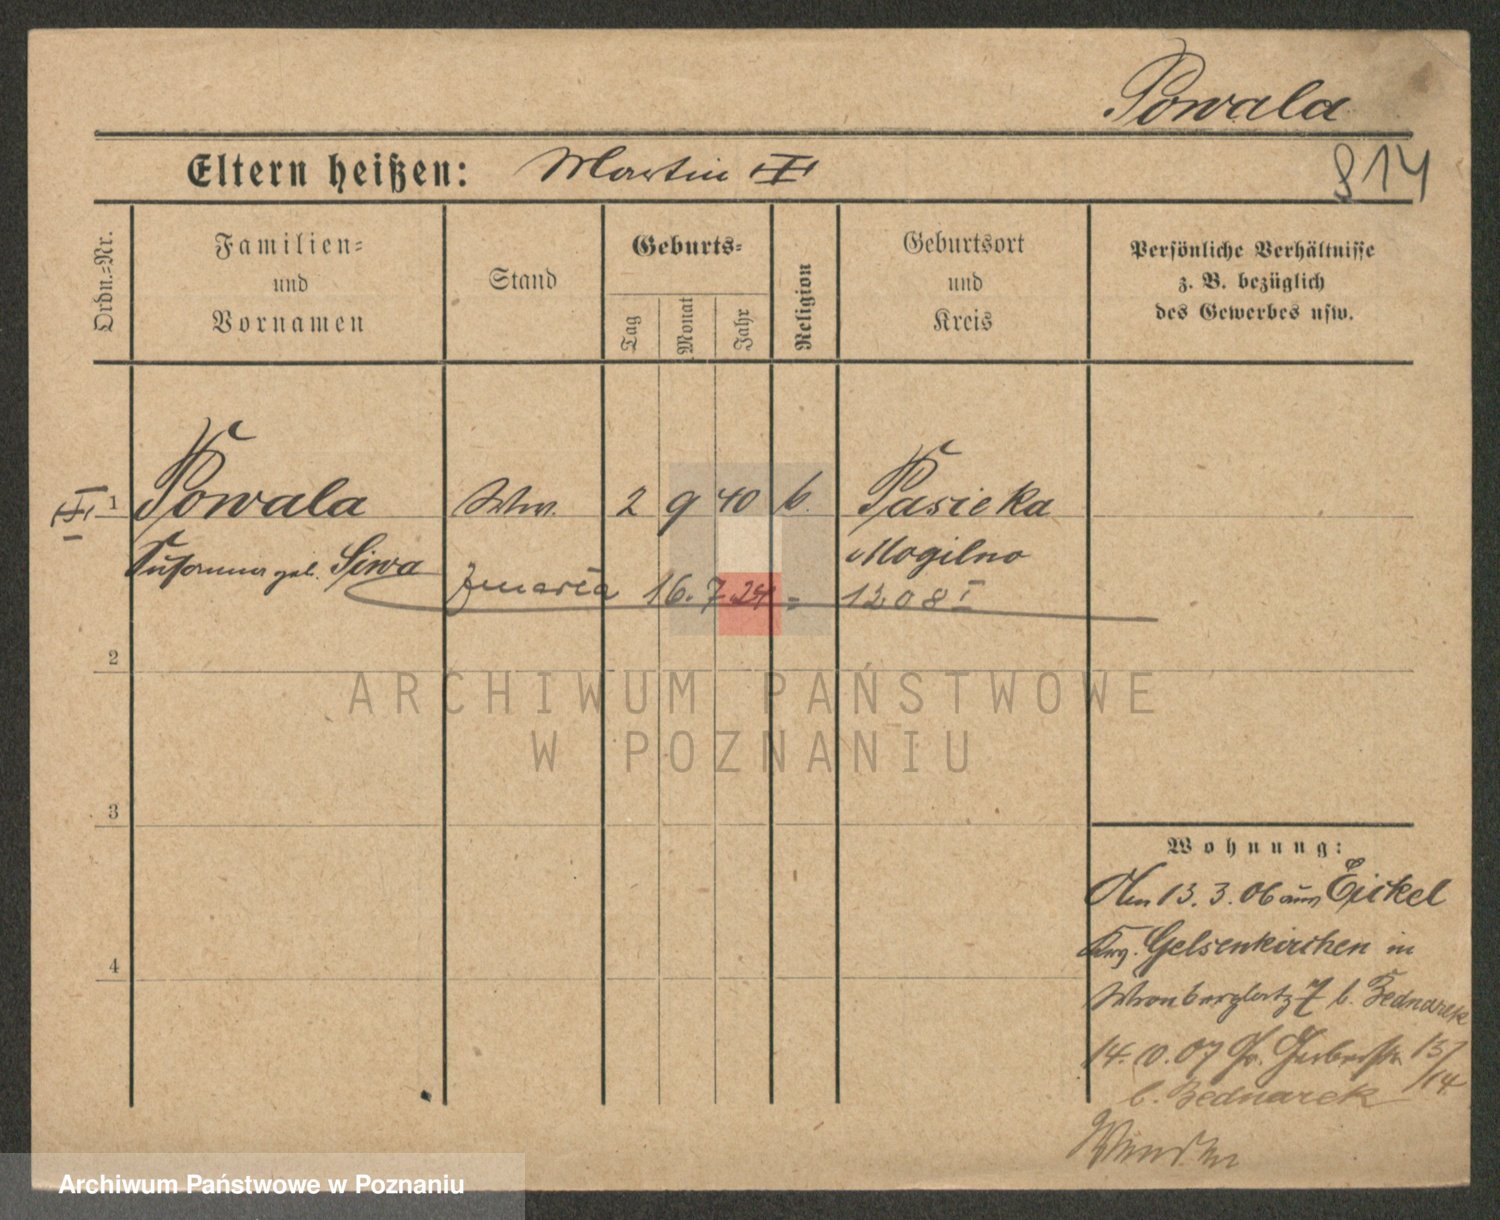 Powala
Eltern heißen: Martin
814
Ordn.=Nr.
Familien=
und
Vornamen
Stand
Geburts=
Tag
Monat
Jahr
Religion
Geburtsort
und
Kreis
Persönliche Verhältnisse
z. B. bezüglich
des Gewerbes usw.
1
Powala
Ww.
2 9 40
Pasieka
geb. Siwa
Mogilno
zmarła 16.7.24 = 1208 I
2
3
4
Wohnung:
13. 3. 06 aus Eickel
Gelsenkirchen in
7 b. Bednarek
14. 10. 07 Gr. Gerberstr. 13/14
b. Bednarek
ARCHIWUM PAŃSTWOWE
W POZNANIU
Archiwum Państwowe w Poznaniu